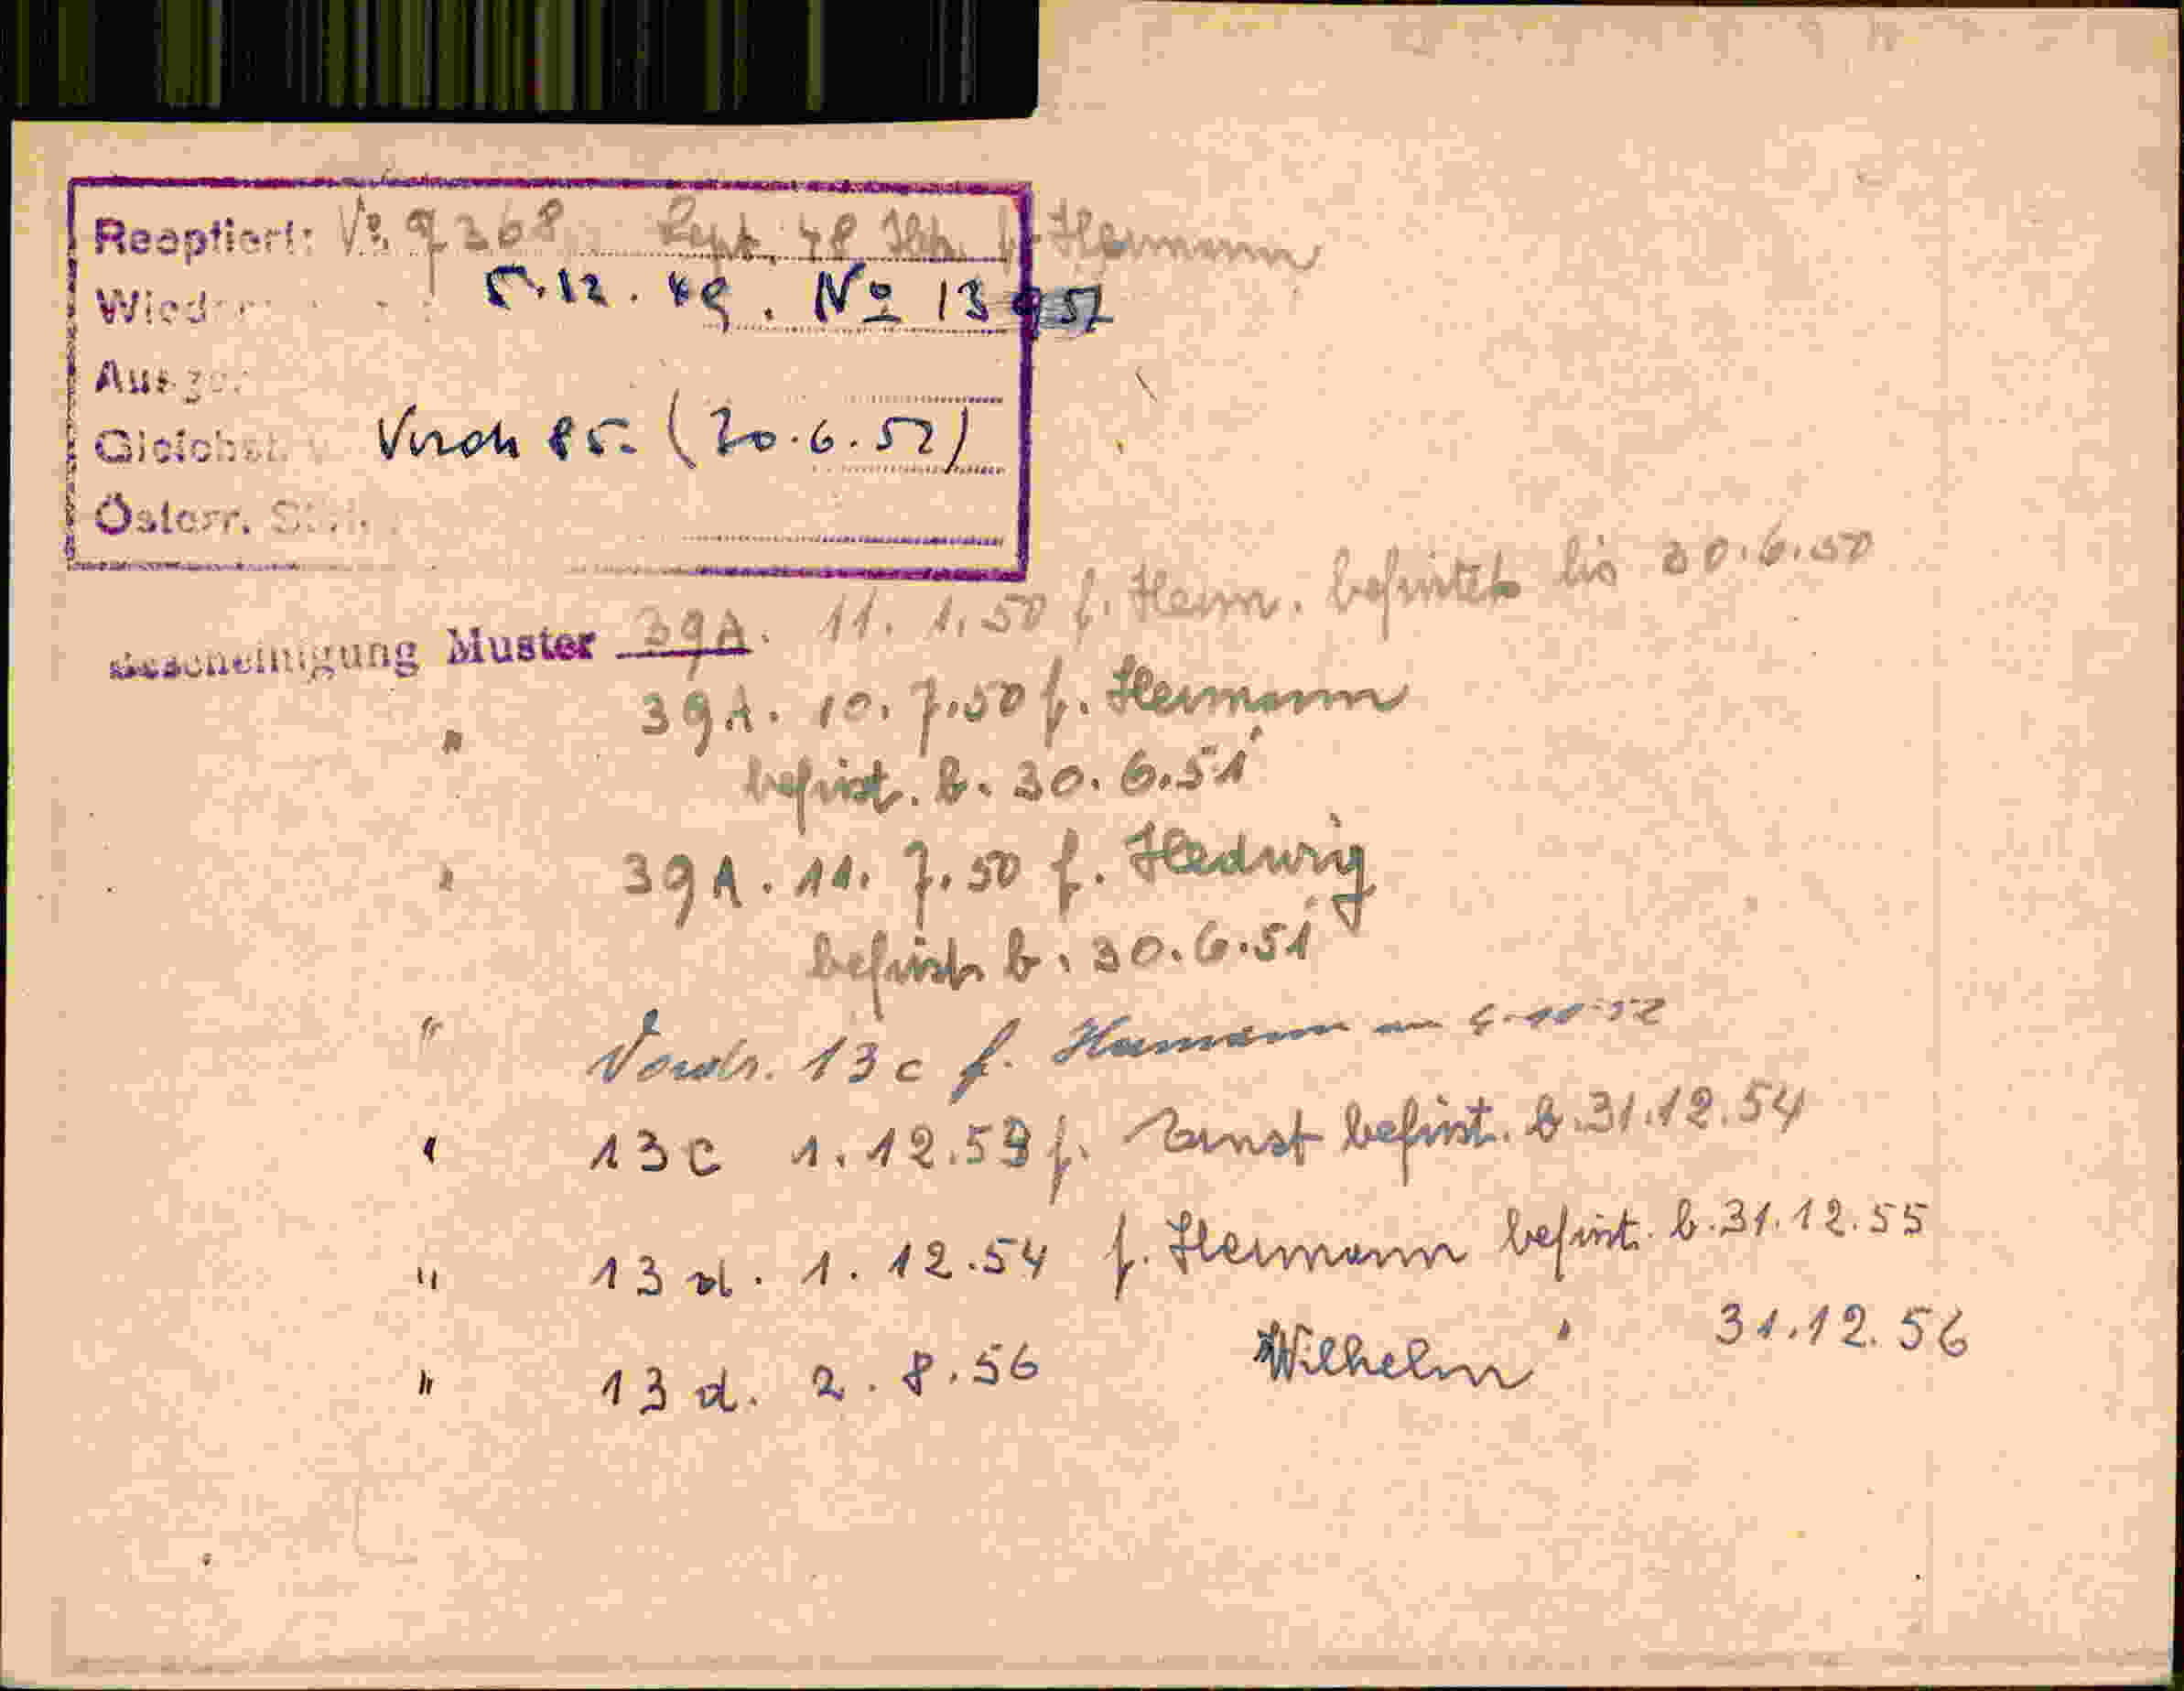 Reoptiert: No. 9368 Sept. 48 f. Hermann
5.12.49. No 13952
Vordr 85. (20.6.52)
Österr.
Bescheinigung Muster 39A. 11. 1. 50 f. Herm. befristet bis 30.6.50
" 39A. 10. 7. 50 f. Hermann
befrist. b. 30. 6. 51
" 39A. 11. 7. 50 f. Hedwig
befrist. b. 30. 6. 51
" Vordr. 13c f. Hermann am
" 13c 1. 12. 53 f. Ernst befrist. b. 31.12.54
" 13 d. 1. 12. 54 f. Hermann befrist. b. 31.12.55
" 13 d. 2. 8. 56 Wilhelm " 31.12.56